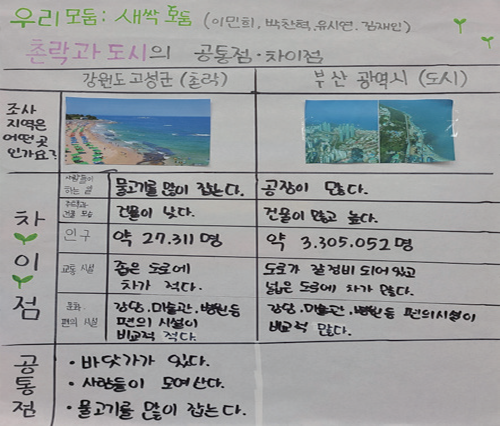 우리 모둠: 새싹 모둠 (이민희, 박찬혁, 유시연, 김재인)
촌락과 도시의 공통점·차이점
강원도 고성군 (촌락) 부산 광역시 (도시)
조사
지역은
어떤 곳
인가요?
차이점
사람들이
하는 일
물고기를 많이 잡는다. 공장이 많다.
건물 모습
건물이 낮다. 건물이 많고 높다.
인구 약 27.311 명 약 3.305.052 명
교통 시설
좁은 도로에 도로가 잘 정비 되어 있고
차가 적다. 넓은 도로에 차가 많다.
문화
편의 시설
강당, 미술관, 병원등 강당, 미술관, 병원등 편의시설이
편의 시설이 비교적 많다.
비교적 적다.
공통점
· 바닷가가 있다.
· 사람들이 모여산다.
· 물고기를 많이 잡는다.